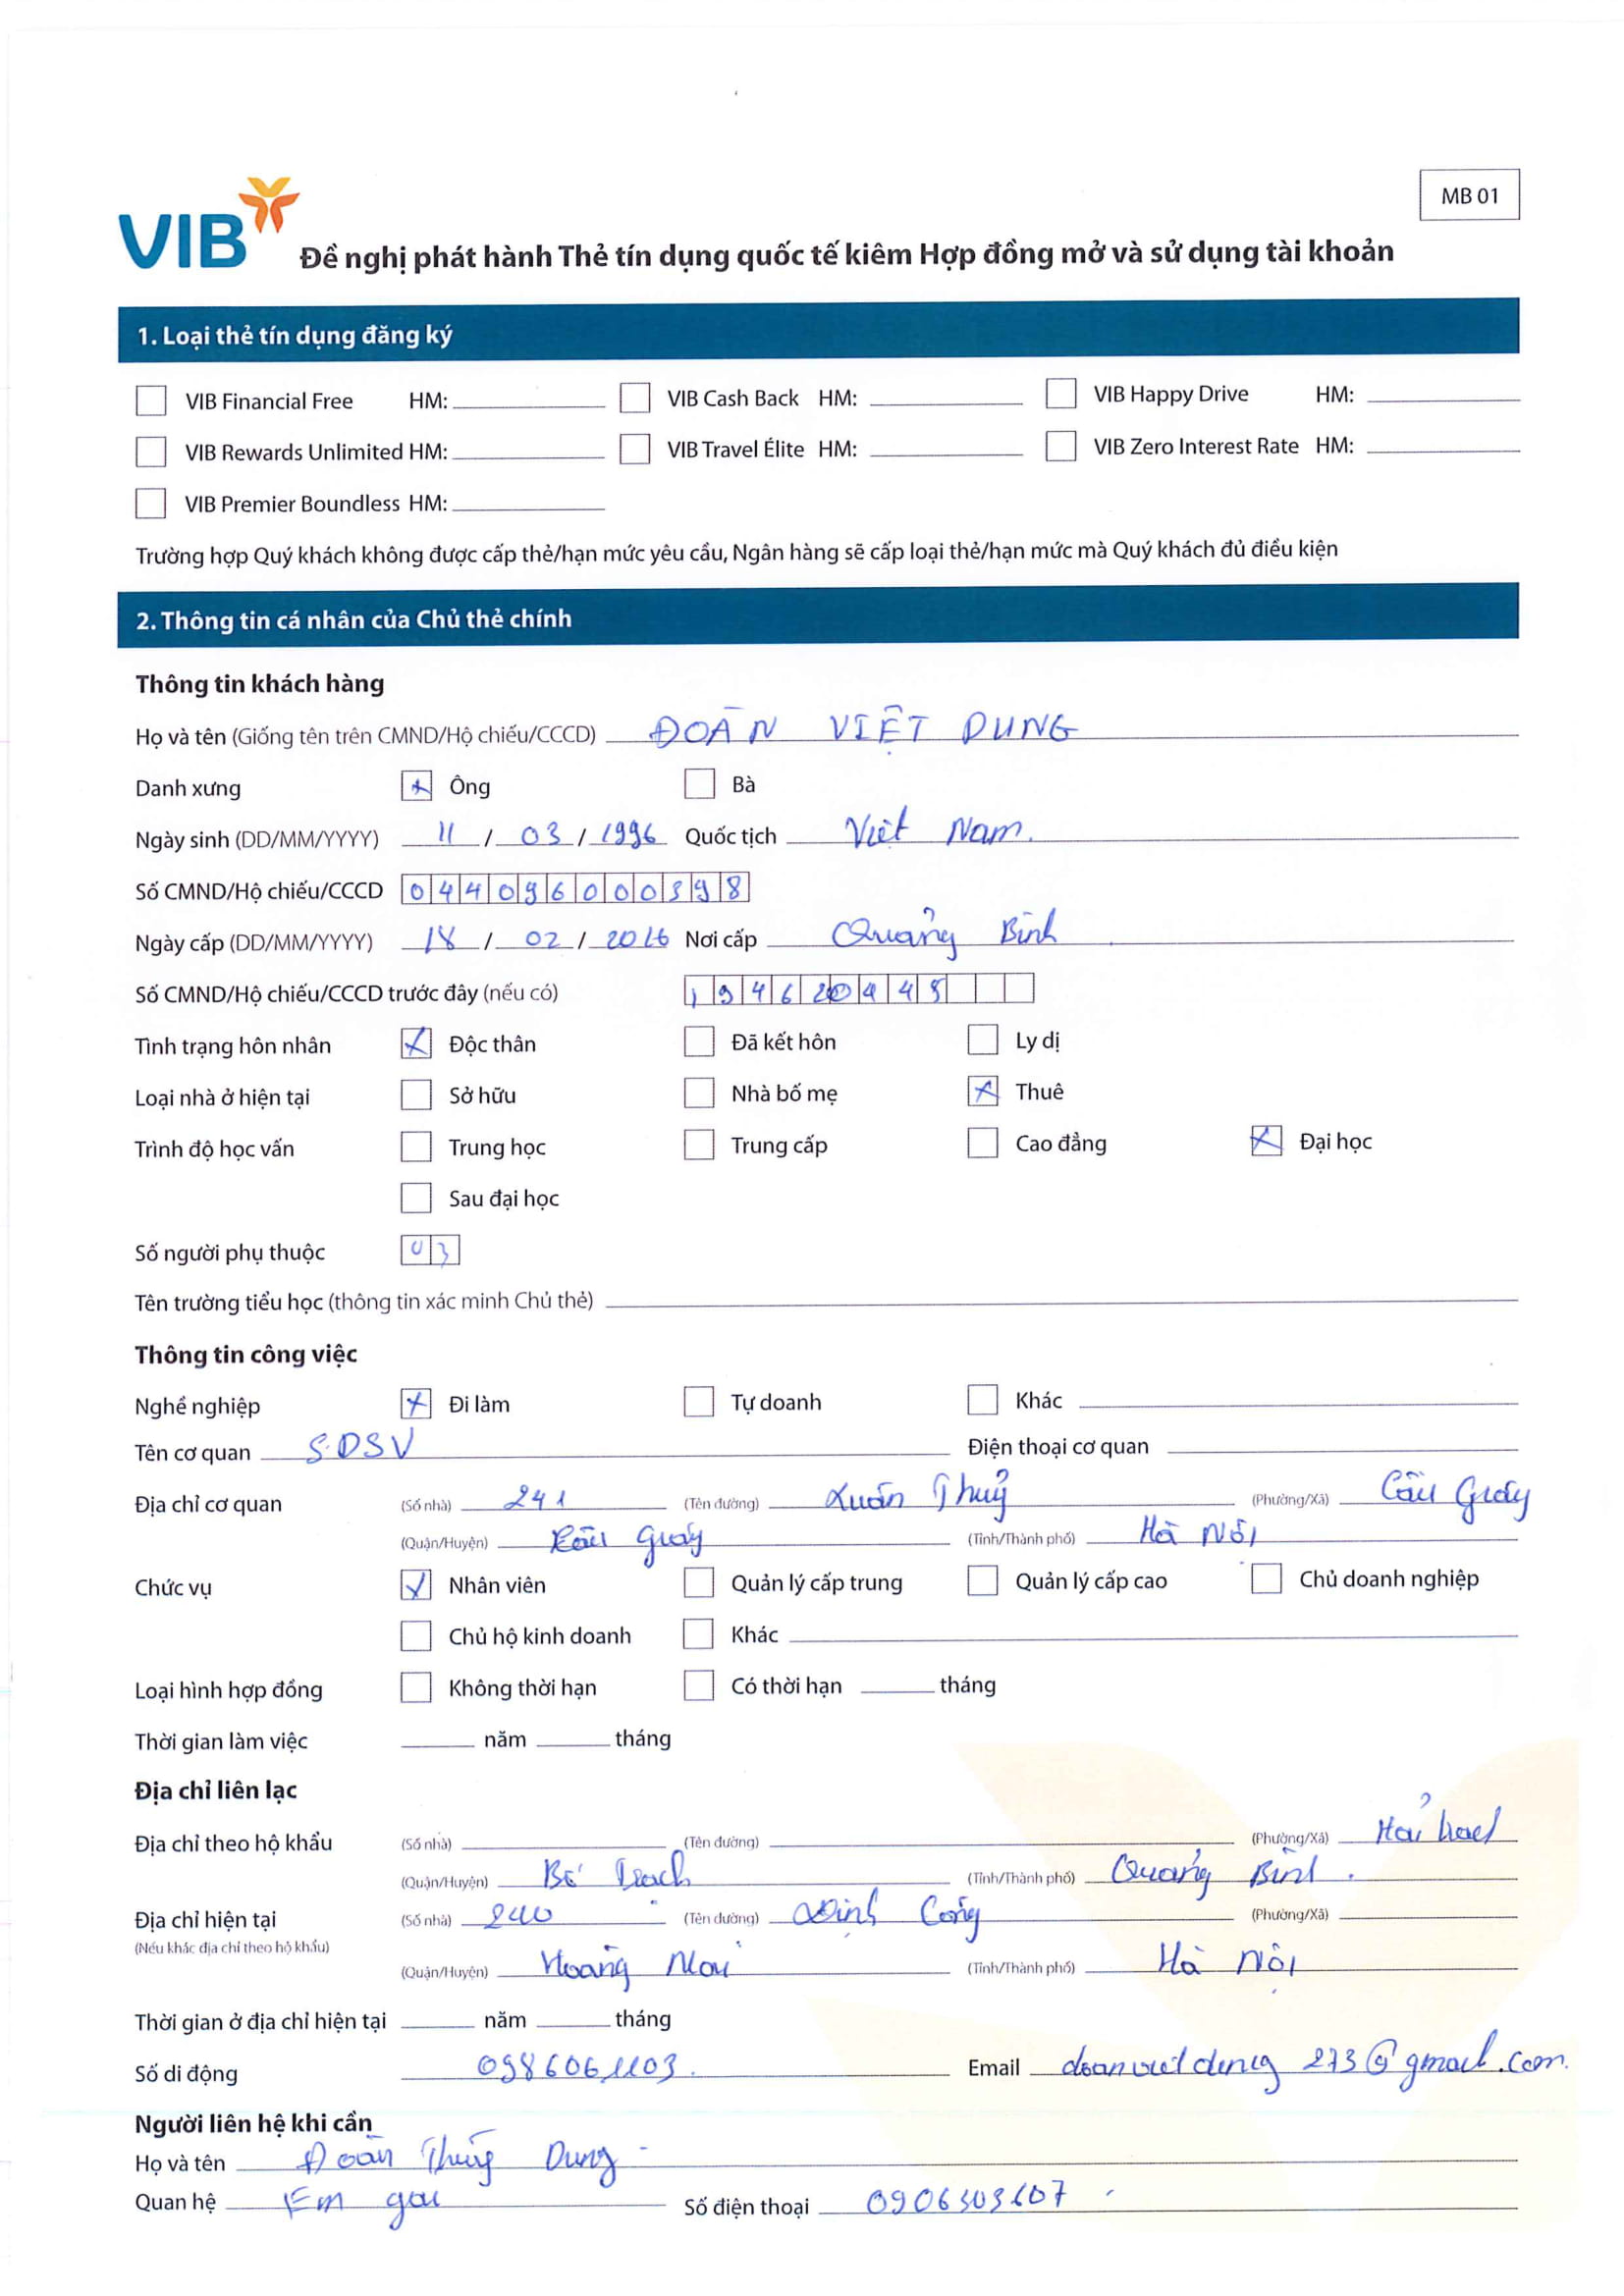 MB 01
VIB
Đề nghị phát hành Thẻ tín dụng quốc tế kiêm Hợp đồng mở và sử dụng tài khoản
1. Loại thẻ tín dụng đăng ký
VIB Financial Free HM: VIB Cash Back HM: VIB Happy Drive HM:
VIB Rewards Unlimited HM: VIB Travel Élite HM: VIB Zero Interest Rate HM:
VIB Premier Boundless HM:
Trường hợp Quý khách không được cấp thẻ/hạn mức yêu cầu, Ngân hàng sẽ cấp loại thẻ/hạn mức mà Quý khách đủ điều kiện
2. Thông tin cá nhân của Chủ thẻ chính
Thông tin khách hàng
Họ và tên (Giống tên trên CMND/Hộ chiếu/CCCD) ĐOÀN VIỆT DUNG
Danh xưng Ông Bà
Ngày sinh (DD/MM/YYYY) 11 / 03 / 1996 Quốc tịch Việt Nam.
Số CMND/Hộ chiếu/CCCD 044096000398
Ngày cấp (DD/MM/YYYY) 18 / 02 / 2016 Nơi cấp Quảng Bình
Số CMND/Hộ chiếu/CCCD trước đây (nếu có) 194620445
Tình trạng hôn nhân Độc thân Đã kết hôn Ly dị
Loại nhà ở hiện tại Sở hữu Nhà bố mẹ Thuê
Trình độ học vấn Trung học Trung cấp Cao đẳng Đại học
Sau đại học
Số người phụ thuộc 03
Tên trường tiểu học (thông tin xác minh Chủ thẻ)
Thông tin công việc
Nghề nghiệp Đi làm Tự doanh Khác
Tên cơ quan SDSV Điện thoại cơ quan
Địa chỉ cơ quan (Số nhà) 241 (Tên đường) Xuân Thuỷ (Phường/Xã) Cầu Giấy
(Quận/Huyện) Cầu Giấy (Tỉnh/Thành phố) Hà Nội
Chức vụ Nhân viên Quản lý cấp trung Quản lý cấp cao Chủ doanh nghiệp
Chủ hộ kinh doanh Khác
Loại hình hợp đồng Không thời hạn Có thời hạn tháng
Thời gian làm việc năm tháng
Địa chỉ liên lạc
Địa chỉ theo hộ khẩu (Số nhà) (Tên đường) (Phường/Xã) Hải
(Quận/Huyện) Bố Trạch (Tỉnh/Thành phố) Quảng Bình.
Địa chỉ hiện tại (Số nhà) 240 (Tên đường) Định Công (Phường/Xã)
(Nếu khác địa chỉ theo hộ khẩu)
(Quận/Huyện) Hoàng Mai (Tỉnh/Thành phố) Hà Nội
Thời gian ở địa chỉ hiện tại năm tháng
Số di động 0986061103. Email doanvietdung273@gmail.com.
Người liên hệ khi cần
Họ và tên Đoàn Thùy Dung
Quan hệ Em gái Số điện thoại 0906303607